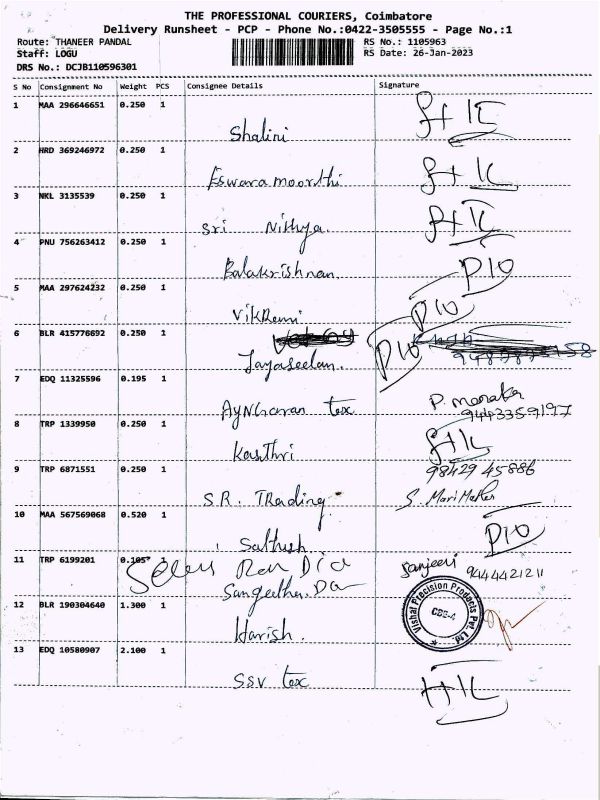 THE PROFESSIONAL COURIERS, Coimbatore
Delivery Runsheet - PCP - Phone No.:0422-3505555 - Page No.:1
Route: THANEER PANDAL
Staff: LOGU
DRS No.: DCJB110596301
RS No.: 1105963
RS Date: 26-Jan-2023
S No Consignment No Weight PCS Consignee Details Signature
1 MAA 296646651 0.250 1
Shalini
2 HRD 369246972 0.250 1
Eswaramoorthi
3 NKL 3135539 0.250 1
Sri Nithya
4 PNU 756263412 0.250 1
Balakrishnan. P10
5 MAA 297624232 0.250 1
P10
6 BLR 415776692 0.250 1
Jayaseelan. P10
7 EDQ 11325596 0.195 1
tex P. menaka
9443359197
8 TRP 1339950 0.250 1
9 TRP 6871551 0.250 1 98429 45886
S.R. Trading S.
10 MAA 567569068 0.520 1
Sathish P10
11 TRP 6199201 0.105 1 Sanjeevi 9444421211
Sangeetha.
12 BLR 190304640 1.300 1 Vishal Precision Products Pvt. Ltd. CBE-4
Harish.
13 EDQ 10580907 2.100 1
SSV tex